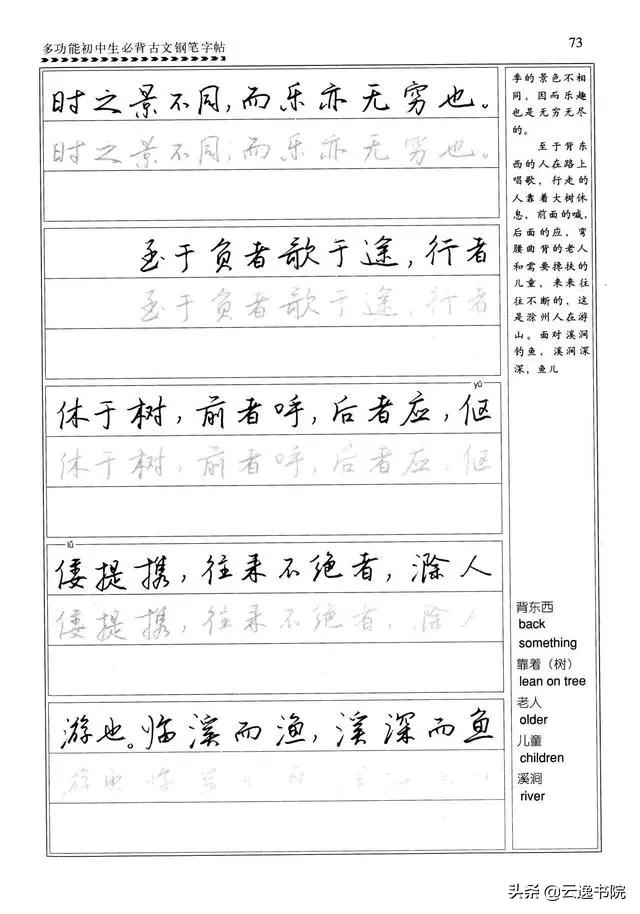 多功能初中生必背古文钢笔字帖
73
时之景不同，而乐亦无穷也。
时之景不同，而乐亦无穷也。
至于负者歌于途，行者
至于负者歌于途，行者
yǔ
休于树，前者呼，后者应，伛
休于树，前者呼，后者应，伛
lǚ
偻提携，往来不绝者，滁人
偻提携，往来不绝者，滁人
游也。临溪而渔，溪深而鱼
季的景色不相
同，因而乐趣
也是无穷无尽
的。
至于背东
西的人在路上
唱歌，行走的
人靠着大树休
息，前面的喊，
后面的应，弯
腰曲背的老人
和需要搀扶的
儿童，来来往
往不断的，这
是滁州人在游
山。面对溪涧
钓鱼，溪涧深
深，鱼儿
背东西
back
something
靠着（树）
lean on tree
老人
older
儿童
children
溪涧
river
头条@云逸书院